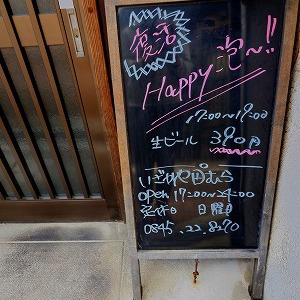 復活
Happy 泡~!!
17:00~19:00
生ビール 390円
いごこや田むら
open 17:00~24:00
定休日 日曜日
0845.22.8270